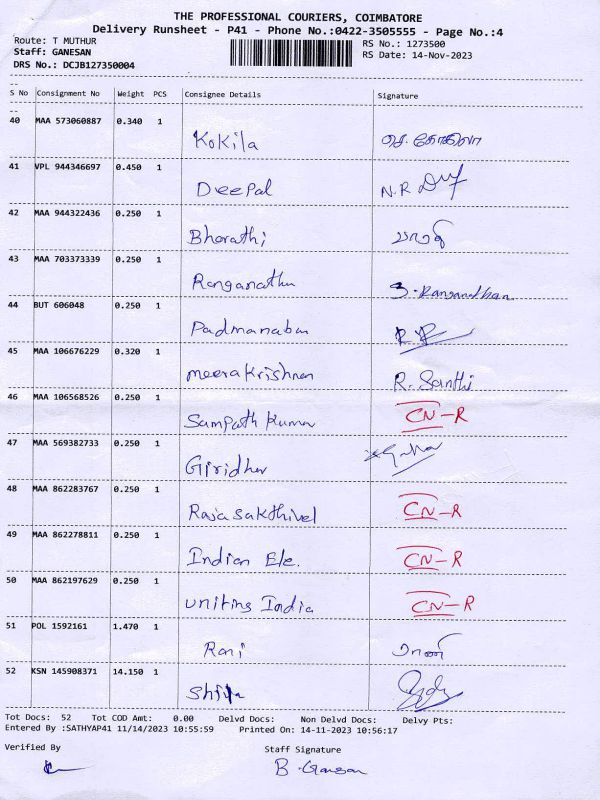 THE PROFESSIONAL COURIERS, COIMBATORE
Delivery Runsheet - P41 - Phone No.:0422-3505555 - Page No.:4
Route: T MUTHUR RS No.: 1273500
Staff: GANESAN RS Date: 14-Nov-2023
DRS No.: DCJB127350004
S No Consignment No Weight PCS Consignee Details Signature
40 MAA 573060887 0.340 1 Kokila செ.கோகிலா
41 VPL 944346697 0.450 1 Deepal N.R
42 MAA 944322436 0.250 1 Bharathi பாரதி
43 MAA 703373339 0.250 1 Ranganathan S. Ranganathan
44 BUT 606048 0.250 1 Padmanaban
45 MAA 106676229 0.320 1 meerakrishnan R. Santhi
46 MAA 106568526 0.250 1 Sampath Kumar CN-R
47 MAA 569382733 0.250 1 Giridhar
48 MAA 862283767 0.250 1 Rajasakthivel CN-R
49 MAA 862278811 0.250 1 Indian Ele. CN-R
50 MAA 862197629 0.250 1 uniting India CN-R
51 POL 1592161 1.470 1 Rani ராணி
52 KSN 145908371 14.150 1
Tot Docs: 52 Tot COD Amt: 0.00 Delvd Docs: Non Delvd Docs: Delvy Pts:
Entered By :SATHYAP41 11/14/2023 10:55:59 Printed On: 14-11-2023 10:56:17
Verified By Staff Signature
B. Ganesan